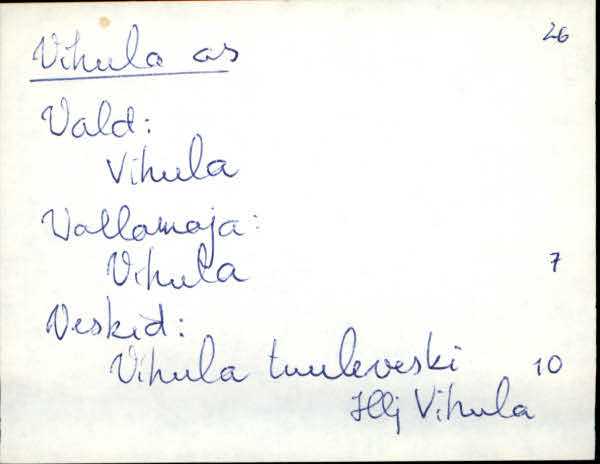 Vihula as 26
Vald:
Vihula
Vallamaja:
Vihula 7
Veskid:
Vihula tuuleveski 10
Vihula